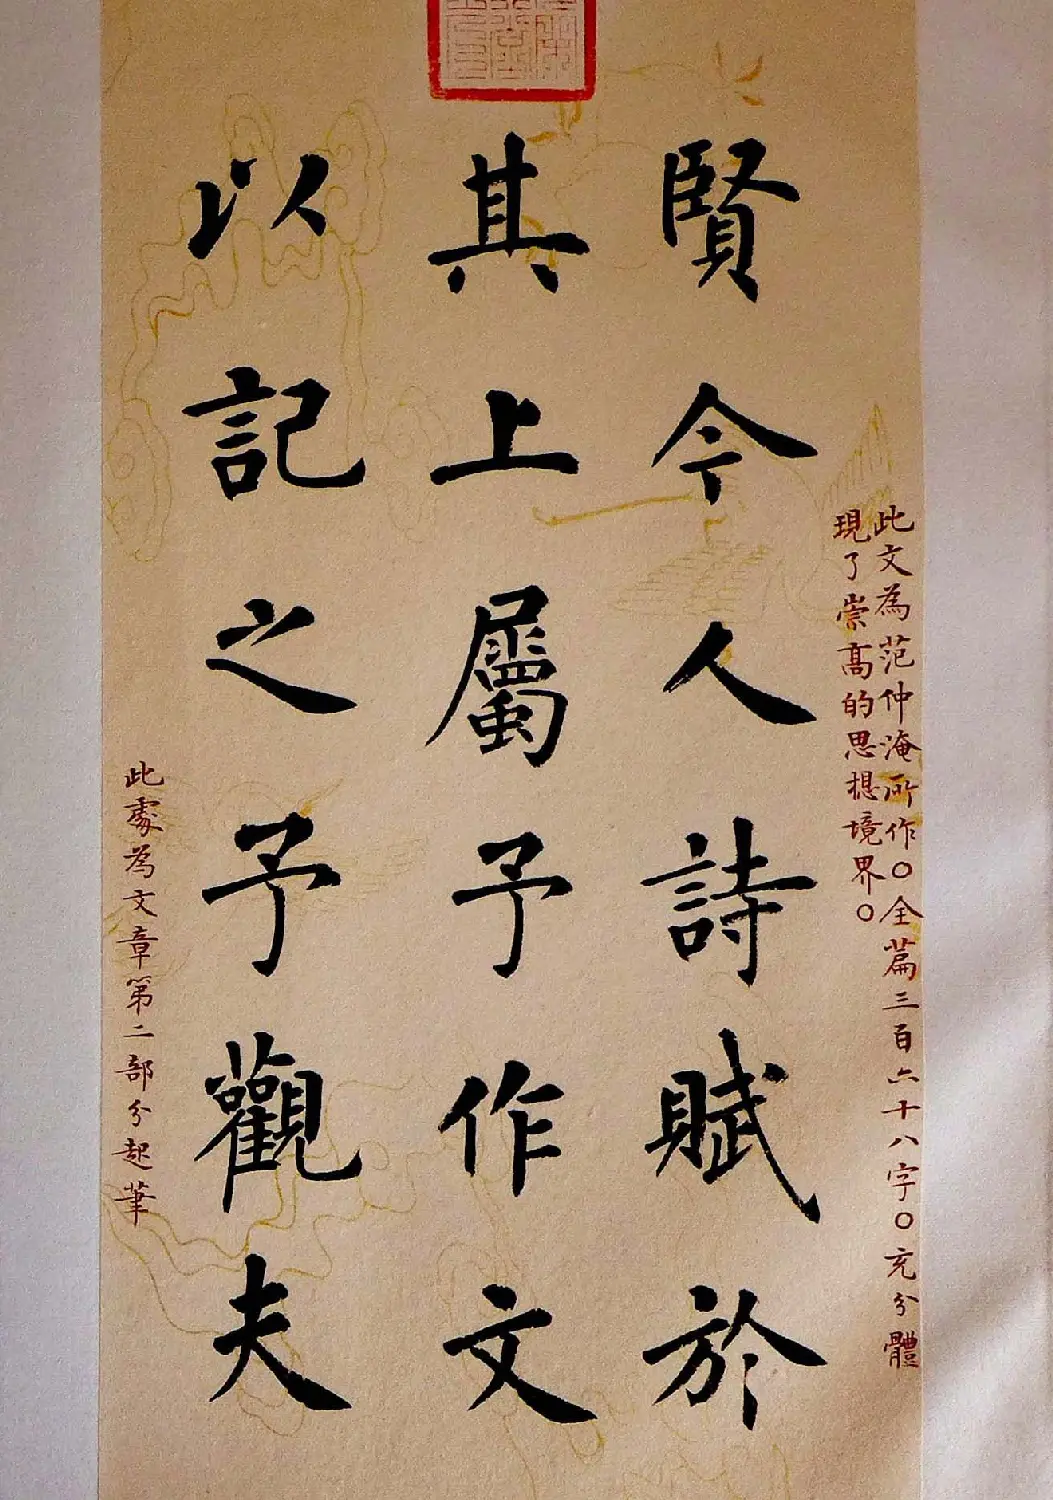 賢今人詩賦於
其上屬予作文
以記之予觀夫
此文為范仲淹所作○全篇三百六十八字○充分體
現了崇高的思想境界○
此處為文章第二部分起筆